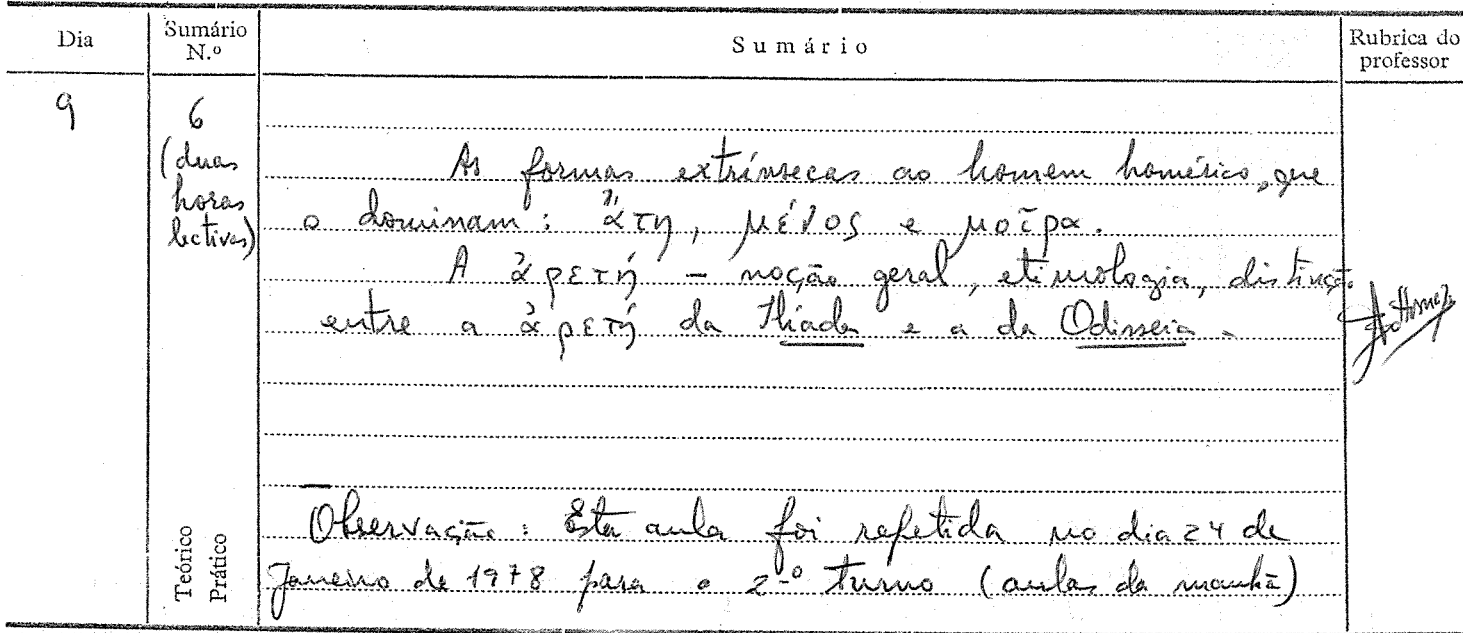 Dia
Sumário
N.º
Sumário
Rubrica do
professor
9
6
(duas
horas
lectivas)
As formas extrínsecas ao homem homérico, que
o dominam: ἄτη, μένος e μοῖρα.
A ἀρετή - noção geral, etimologia, distinção
entre a ἀρετή da Ilíada e a da Odisseia.
Teórico
Prático
Observação: Esta aula foi repetida no dia 24 de
Janeiro de 1978 para o 2.º turno (aulas da manhã)